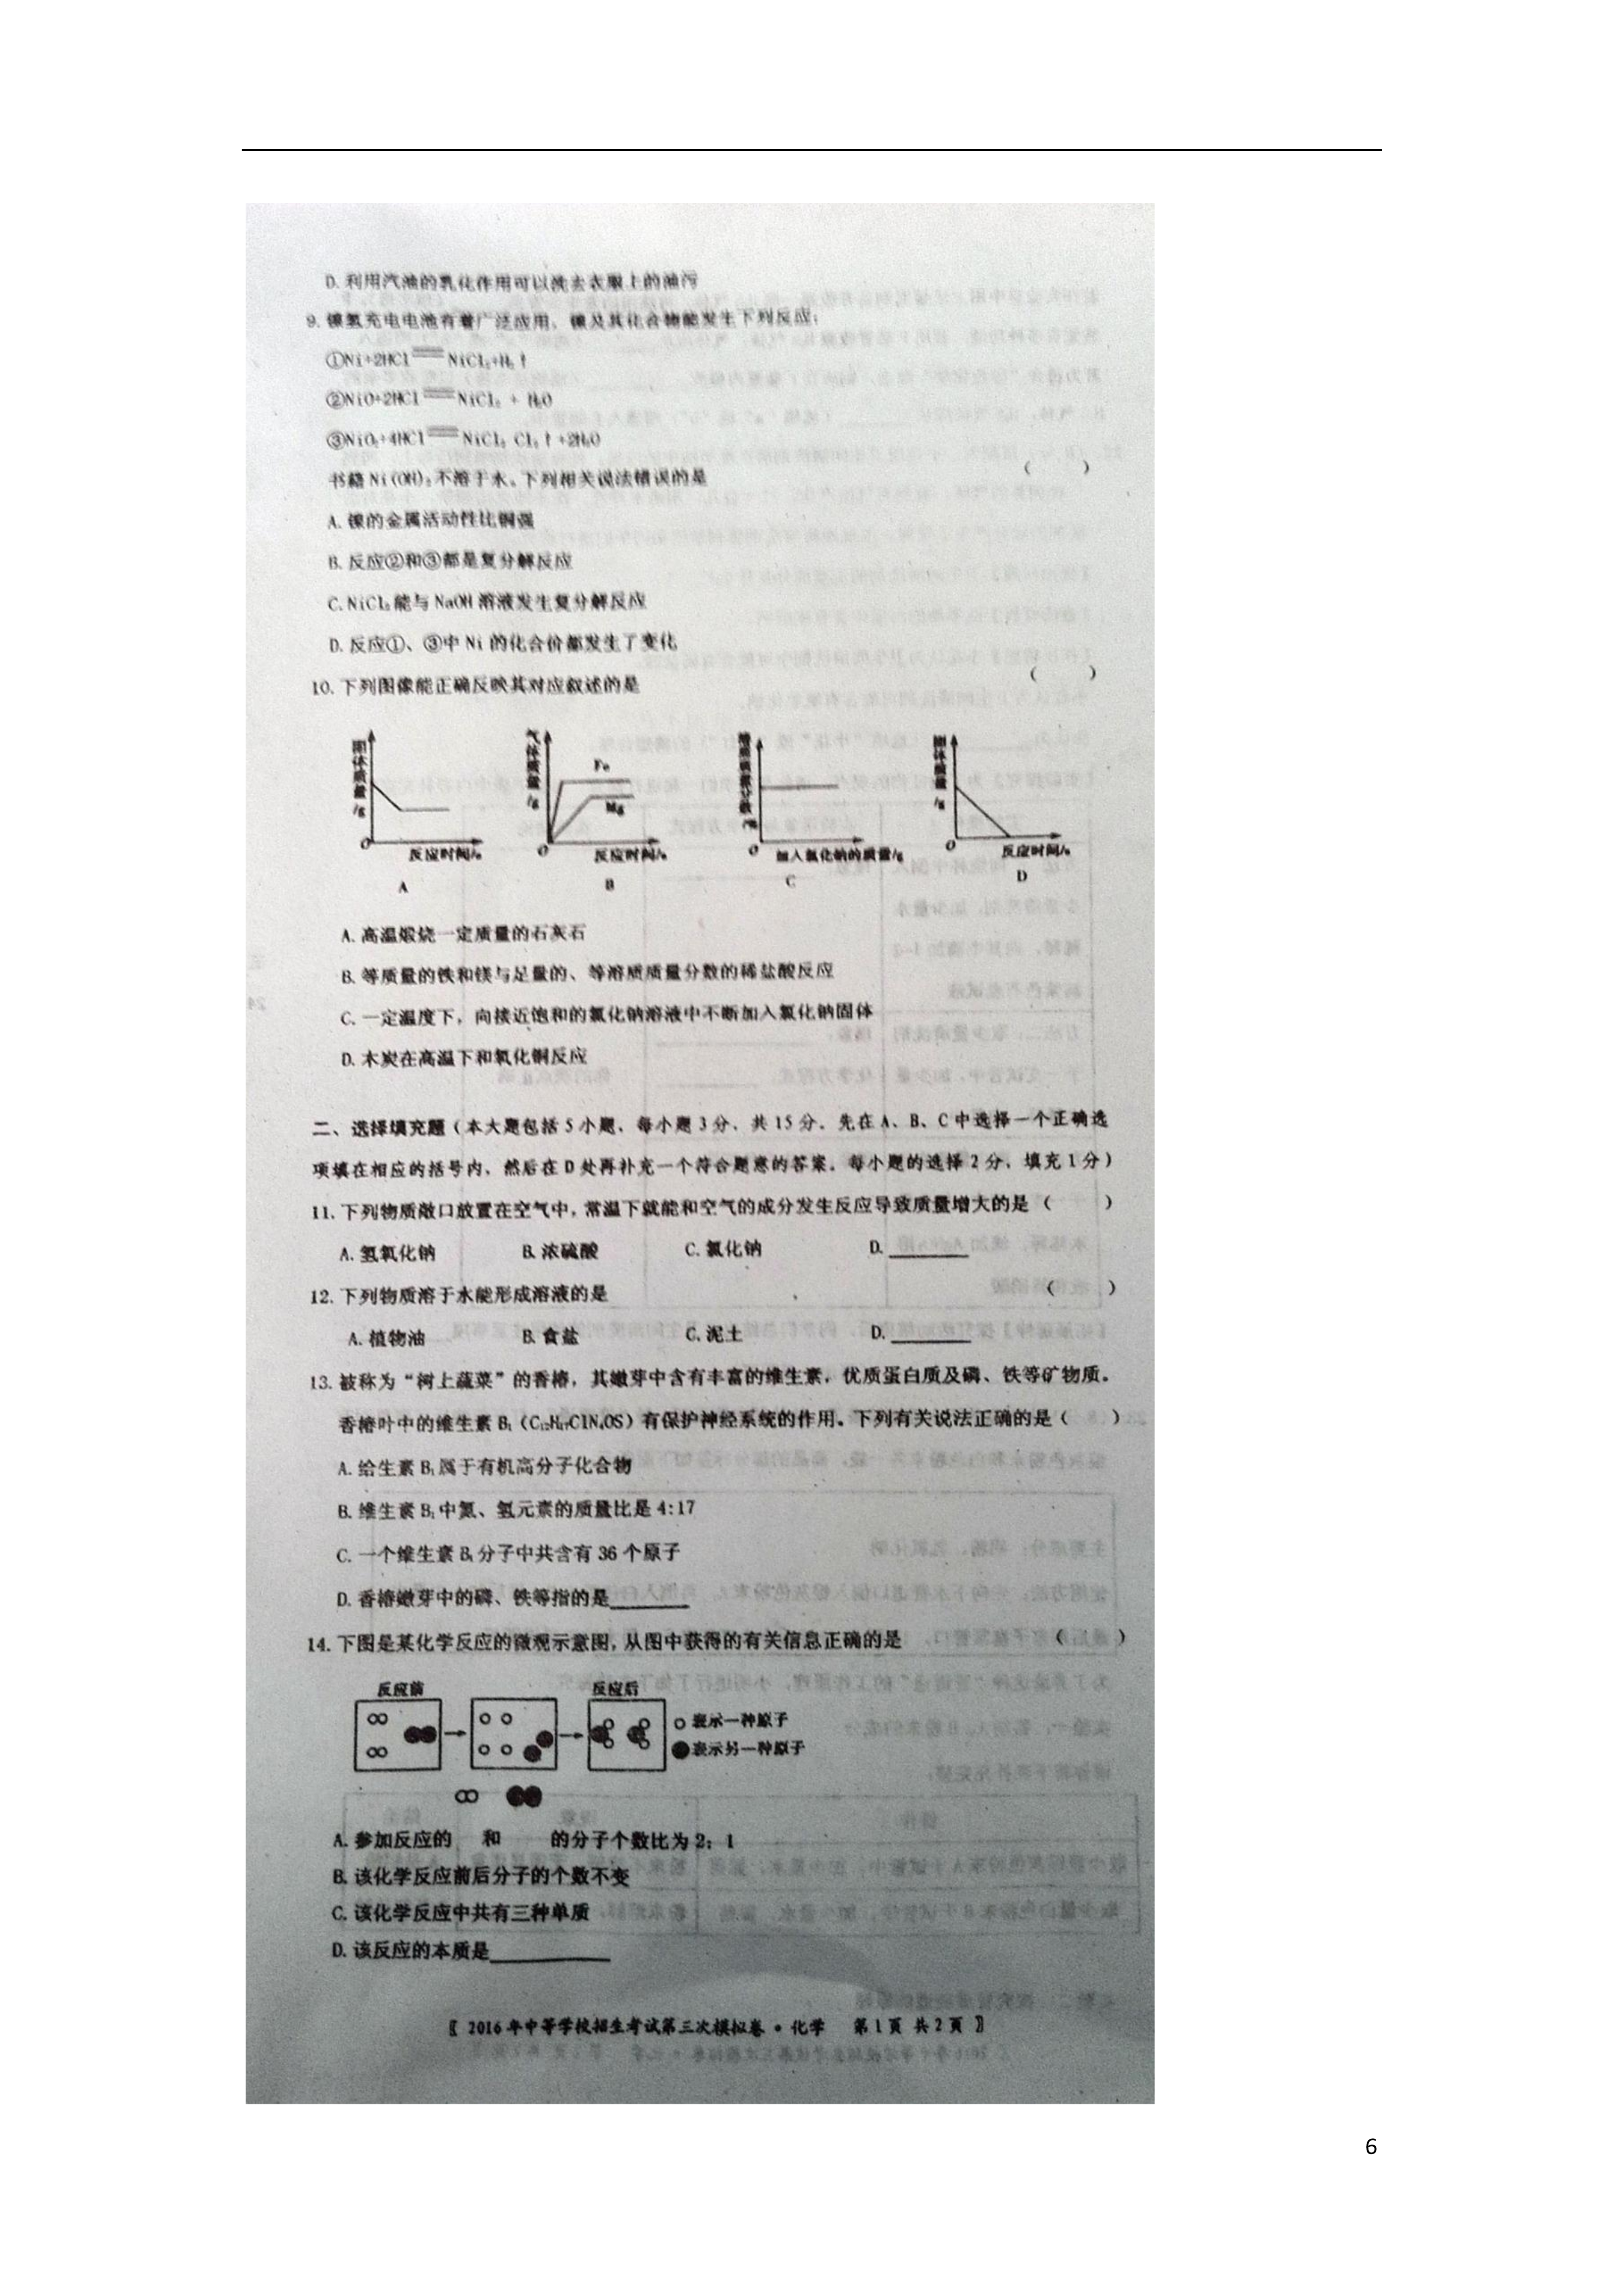 D. 利用汽油的乳化作用可以洗去衣服上的油污
9. 镍氢充电电池有着广泛应用，镍及其化合物能发生下列反应：
①Ni+2HCl══NiCl₂+H₂↑
②NiO+2HCl══NiCl₂ + H₂O
③NiO₂+4HCl══NiCl₂ Cl₂↑+2H₂O
书籍 Ni(OH)₂不溶于水。下列相关说法错误的是 （ ）
A. 镍的金属活动性比铜强
B. 反应②和③都是复分解反应
C. NiCl₂能与 NaOH 溶液发生复分解反应
D. 反应①、③中 Ni 的化合价都发生了变化
10. 下列图像能正确反映其对应叙述的是 （ ）
固体质量/g O 反应时间/s A
气体质量/g Fe Mg O 反应时间/s B
溶质质量分数/% O 加入氯化钠的质量/g C
固体质量/g O 反应时间/s D
A. 高温煅烧一定质量的石灰石
B. 等质量的铁和镁与足量的、等溶质质量分数的稀盐酸反应
C. 一定温度下，向接近饱和的氯化钠溶液中不断加入氯化钠固体
D. 木炭在高温下和氧化铜反应
二、选择填充题（本大题包括 5 小题，每小题 3 分，共 15 分。先在 A、B、C 中选择一个正确选
项填在相应的括号内，然后在 D 处再补充一个符合题意的答案。每小题的选择 2 分，填充 1 分）
11. 下列物质敞口放置在空气中，常温下就能和空气的成分发生反应导致质量增大的是（ ）
A. 氢氧化钠 B. 浓硫酸 C. 氯化钠 D. ________
12. 下列物质溶于水能形成溶液的是 （ ）
A. 植物油 B. 食盐 C. 泥土 D. ________
13. 被称为“树上蔬菜”的香椿，其嫩芽中含有丰富的维生素，优质蛋白质及磷、铁等矿物质。
香椿叶中的维生素 B₁（C₁₂H₁₇ClN₄OS）有保护神经系统的作用。下列有关说法正确的是（ ）
A. 给生素 B₁属于有机高分子化合物
B. 维生素 B₁中氮、氢元素的质量比是 4:17
C. 一个维生素 B₁分子中共含有 36 个原子
D. 香椿嫩芽中的磷、铁等指的是________
14. 下图是某化学反应的微观示意图，从图中获得的有关信息正确的是 （ ）
反应前 反应后
表示一种原子
表示另一种原子
A. 参加反应的 和 的分子个数比为 2：1
B. 该化学反应前后分子的个数不变
C. 该化学反应中共有三种单质
D. 该反应的本质是____________
〖 2016 年中等学校招生考试第三次模拟卷·化学 第 1 页 共 2 页 〗
6